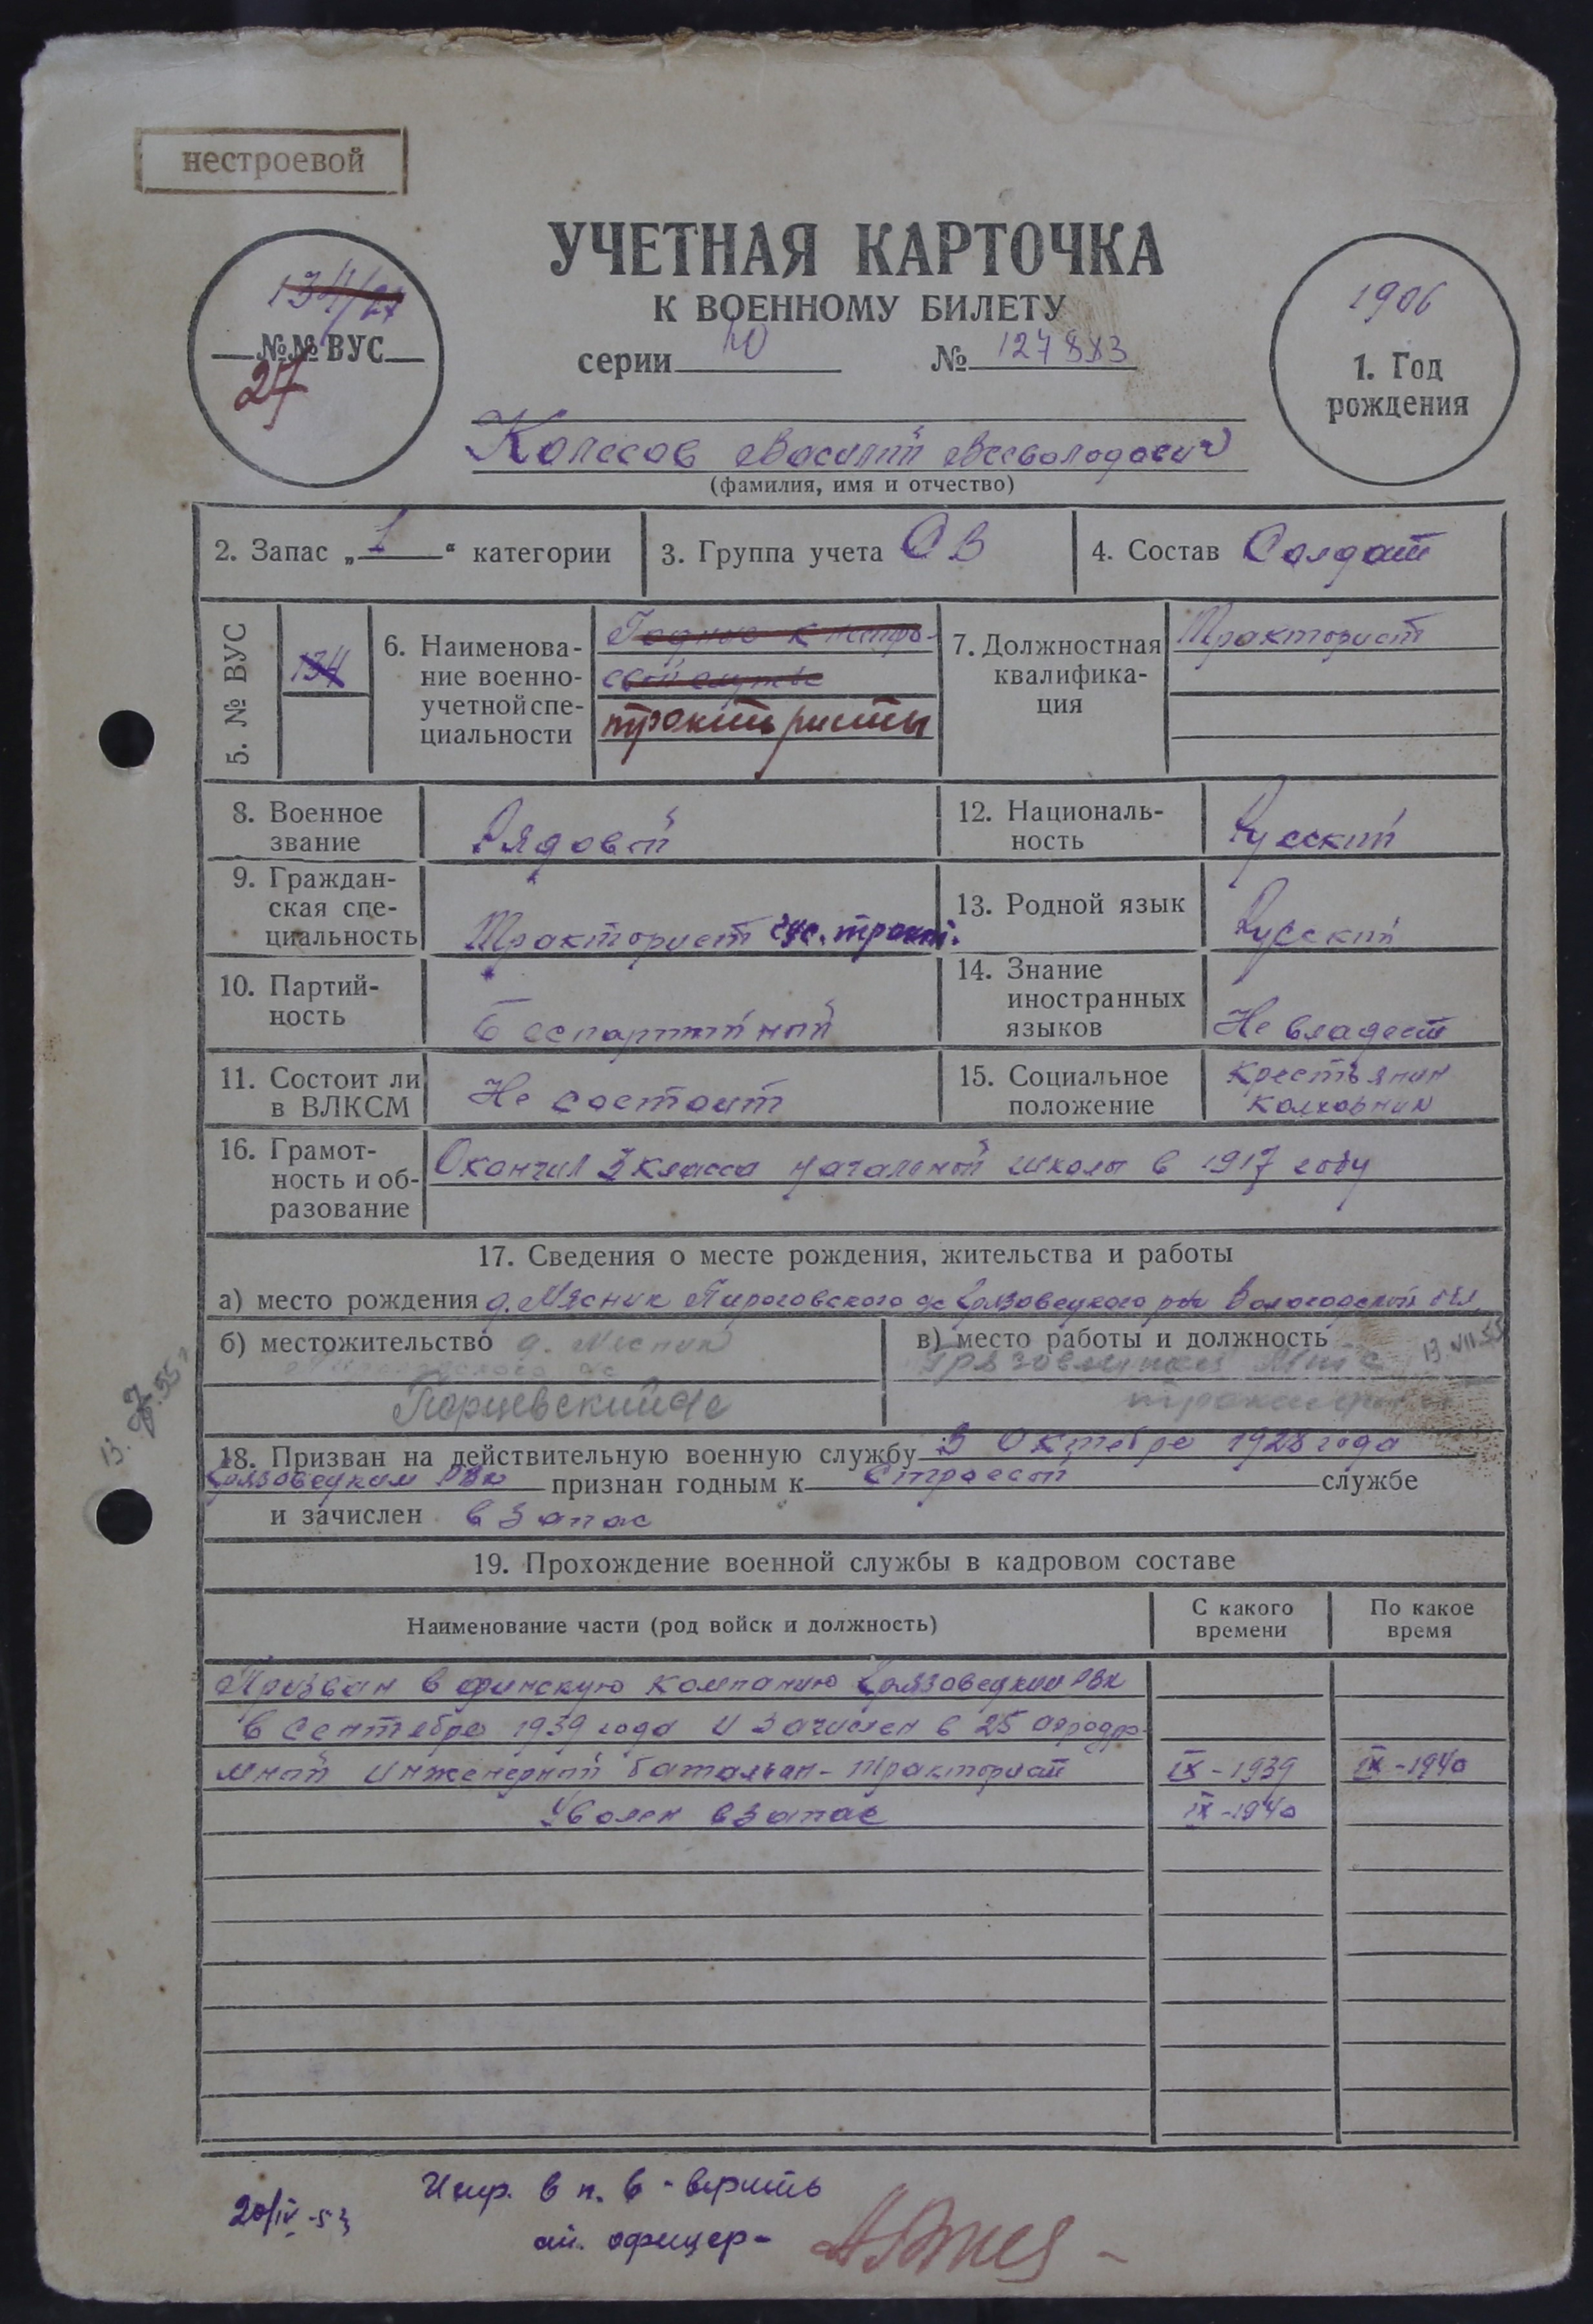 нестроевой
УЧЕТНАЯ КАРТОЧКА
К ВОЕННОМУ БИЛЕТУ
134/27
№№ ВУС
27
серии № 127883
1906
1. Год
рождения
Колесов Василий Всеволодович
(фамилия, имя и отчество)
2. Запас „1“ категории
3. Группа учета СВ
4. Состав Солдат
5. № ВУС
134
6. Наименова-
ние военно-
учетной спе-
циальности
Годные к нестро-
евой службе
трактористы
7. Должностная
квалифика-
ция
Тракторист
8. Военное
звание
Рядовой
12. Националь-
ность
Русский
9. Граждан-
ская спе-
циальность
Тракторист гус. тракт.
13. Родной язык
Русский
10. Партий-
ность
Беспартийный
14. Знание
иностранных
языков
Не владеет
11. Состоит ли
в ВЛКСМ
Не состоит
15. Социальное
положение
Крестьянин
колхозник
16. Грамот-
ность и об-
разование
Окончил 3 класса начальной школы в 1917 году
17. Сведения о месте рождения, жительства и работы
а) место рождения д. Мясник Пироговского с/с Грязовецкого р-на Вологодской обл
б) местожительство д. Мясник
Пироговского с/с
Порцевский с/с
в) место работы и должность
13.VII.55
Грязовецкая МТС
тракторист
13.7.55 г
18. Призван на действительную военную службу В Октябре 1928 года
Грязовецким РВК признан годным к строевой службе
и зачислен в запас
19. Прохождение военной службы в кадровом составе
Наименование части (род войск и должность)
С какого
времени
По какое
время
Призван в финскую компанию Грязовецким РВК
в сентябре 1939 года и зачислен в 25 аэродро-
мный инженерный батальон - тракторист IX-1939 IX-1940
Уволен в запас IX-1940
20/IV-53
Испр. в п. 6 - верить
офицер-